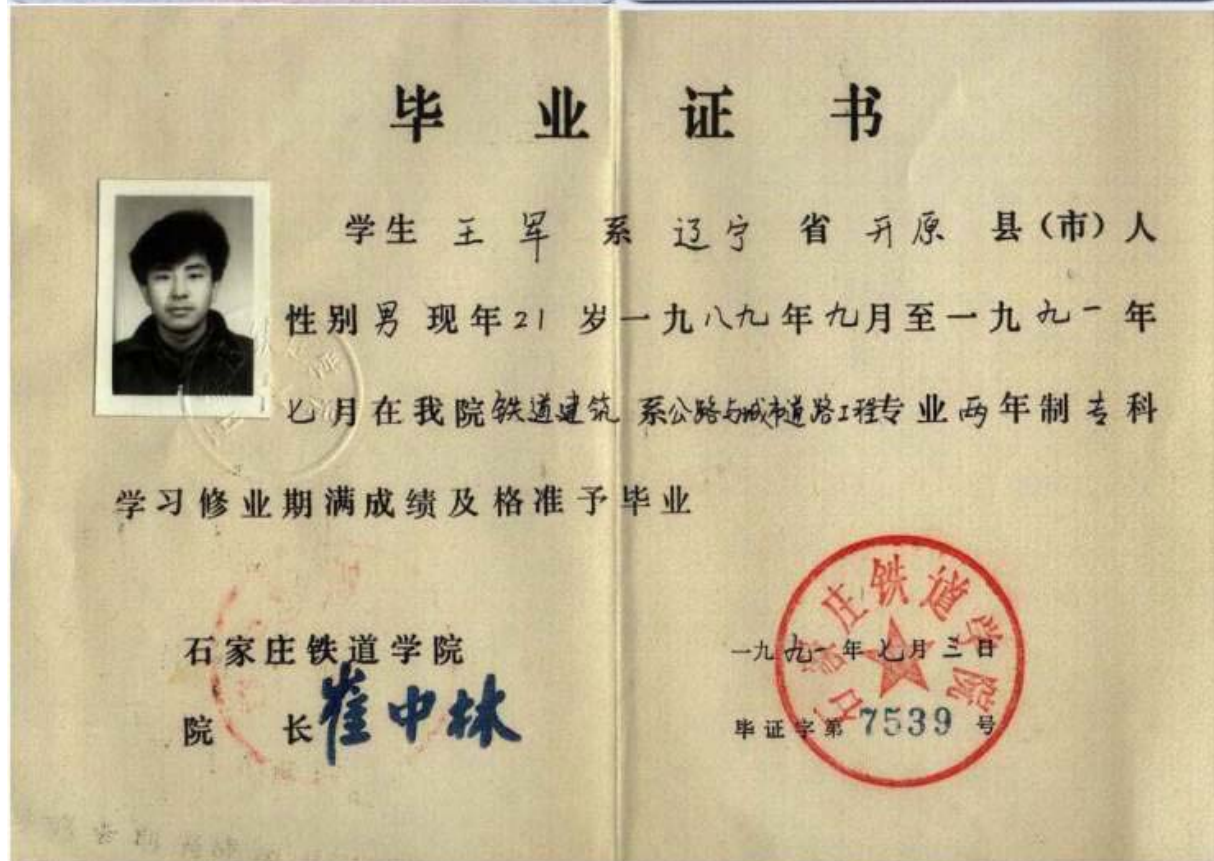 毕业证书
学生 王军 系 辽宁 省 开原 县（市）人
性别 男 现年 21 岁一九八九年九月至一九九一年
七月在我院铁道建筑系公路与城市道路工程专业两年制专科
学习修业期满成绩及格准予毕业
石家庄铁道学院
院 长 崔中林
石家庄铁道学院
一九九一年七月三日
毕证字第 7539 号